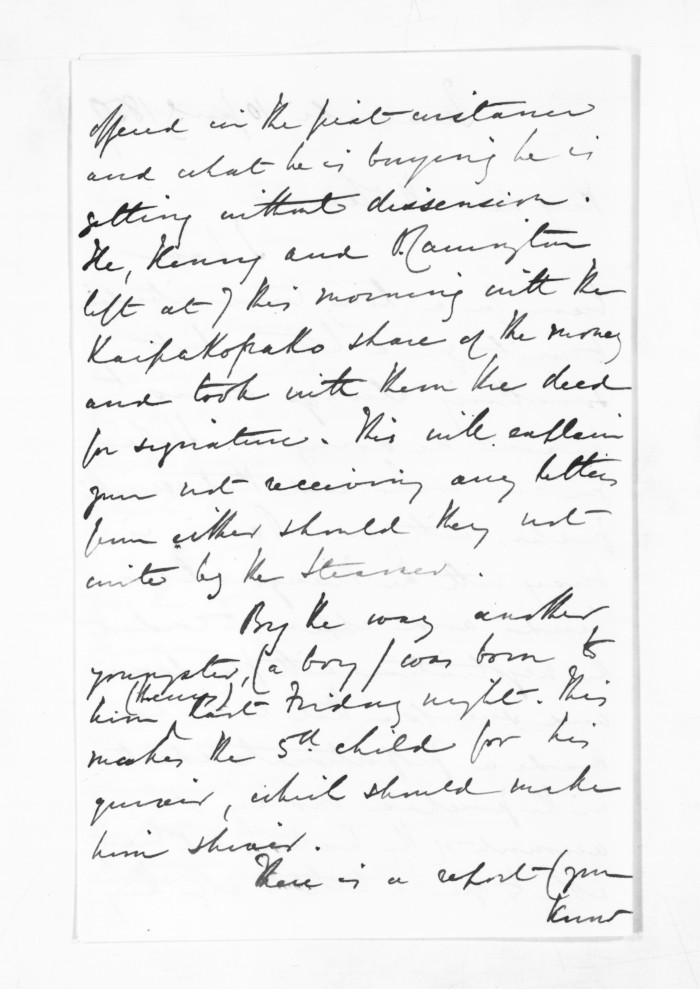 offered in the first instance
and what he is buying he is
getting without dissension.
He, Henry and
left at 7 this morning with the
Kaipakopako share of the money
and took with them the deed
for signature. This will explain
your not receiving any letters
from either should they not
write by the Steamer.
By the way another
youngster, (a boy) was born to
(Henry)
him last Friday night. This
makes the 5th. child for his
quiver, which should make
him shiver.
There is a report (you
know